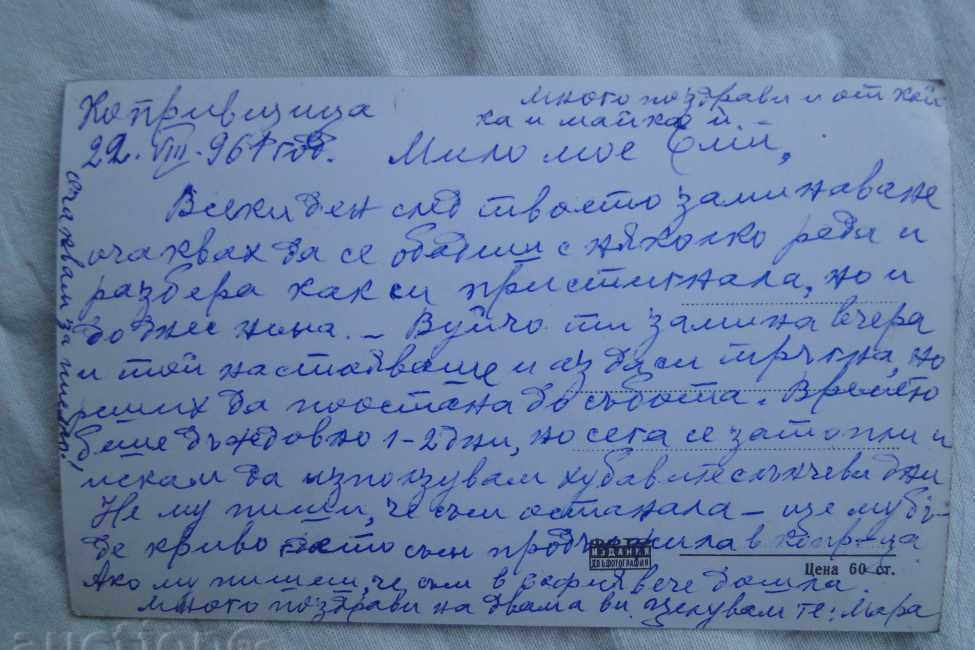 Копривщица
22. VIII. 961 год.
много поздрави и от Кой-
ка и майка й
Мило мое Ели,
Всеки ден след твоето заминаване
очаквах да се обадиш с няколко реда и
разбера как си пристигнала, но и
до днес няма. – Вуйчо ти замина вчера
и той настояваше и аз да си тръгна, но
реших да поостана до събота. Времето
беше дъждовно 1-2 дни, но сега се затопли и
искам да използувам хубавите слънчеви дни
Не му пиши, че съм останала – ще му бъ-
де криво съм продължила в Копр-ца
Ако му пишеш, че съм в София вече дошла.
много поздрави на двама ви. Целувам те: Мара
очаквам за писмо!
ИЗДАНИЕ
ДВ"ФОТОГРАФИЯ
Цена 60 ст.